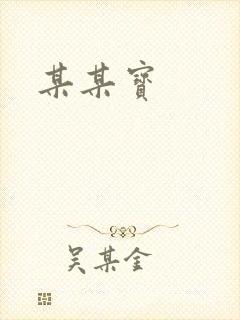 某某寳
吴某金